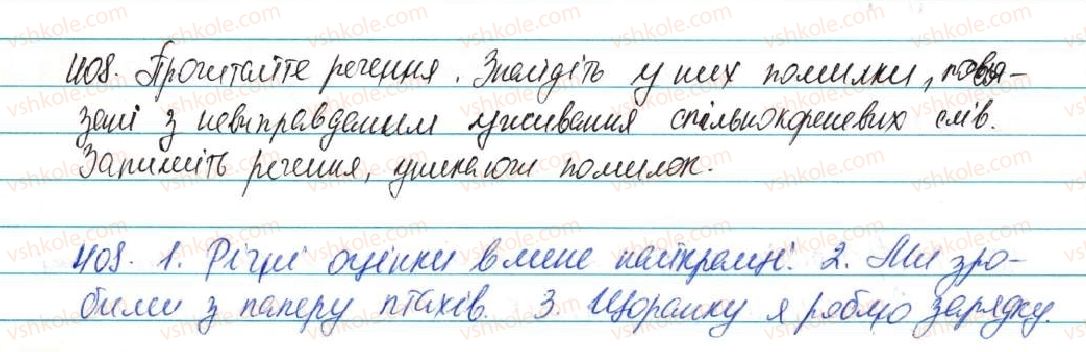 408. Прочитайте речення. Знайдіть у них помилки, пов'я-
зані з невиправданим уживання спільнокореневих слів.
Запишіть речення, уникаючи помилок.
408. 1. Річні оцінки в мене найкращі. 2. Ми зро-
били з паперу птахів. 3. Щоранку я роблю зарядку.